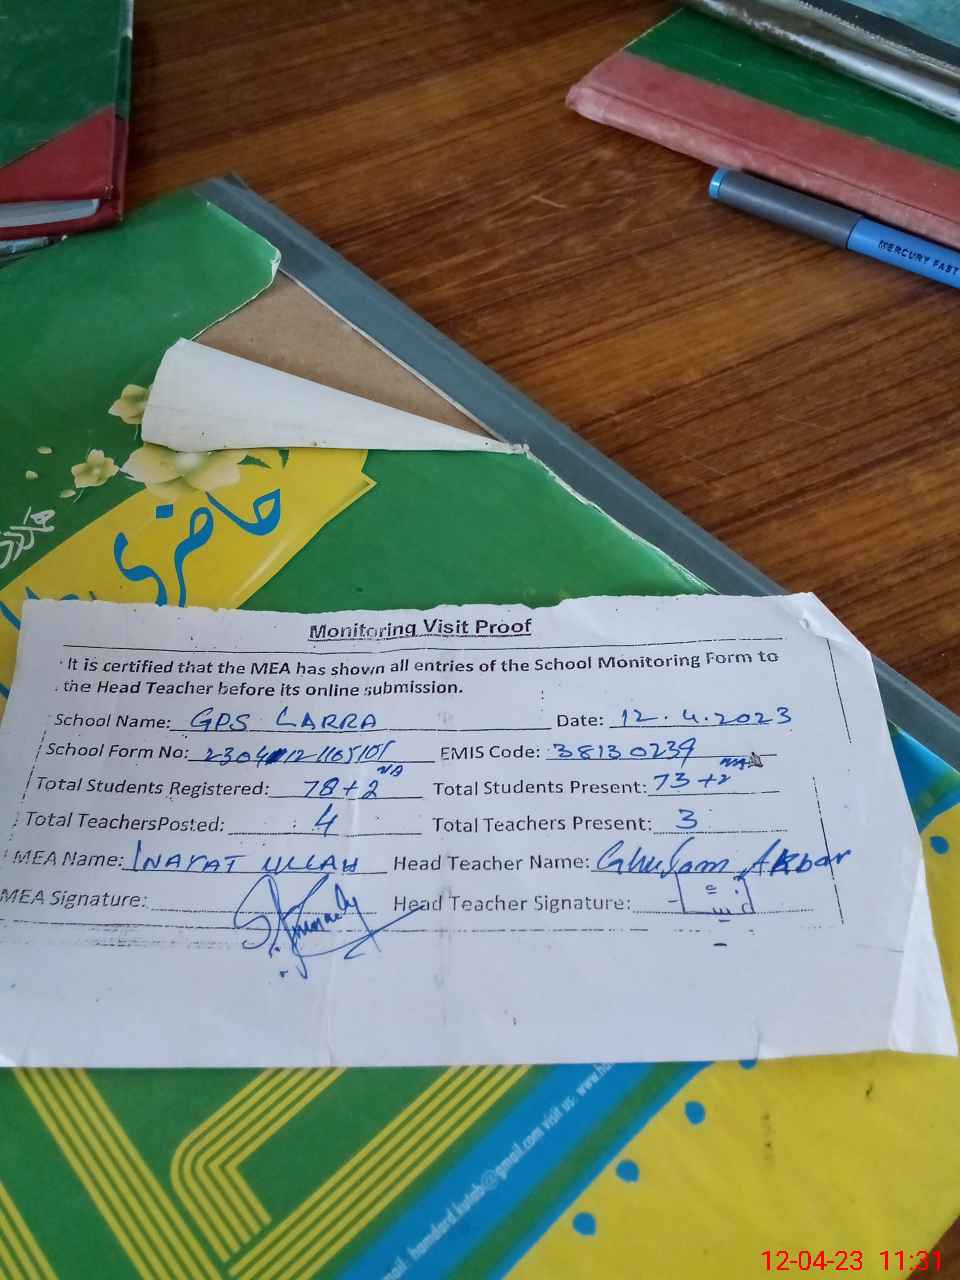 MERCURY FAST
حاضری
Monitoring Visit Proof
It is certified that the MEA has shown all entries of the School Monitoring Form to
the Head Teacher before its online submission.
School Name: GPS LARRA Date: 12.4.2023
School Form No: EMIS Code: 38130239
Total Students Registered: 78+2 NA Total Students Present: 73+2
Total TeachersPosted: 4 Total Teachers Present: 3
MEA Name: INAYAT ULLAH Head Teacher Name: Ghulam Akbar
MEA Signature: Head Teacher Signature:
hamdard.kutab@gmail.com visit us: www.
12-04-23 11:31